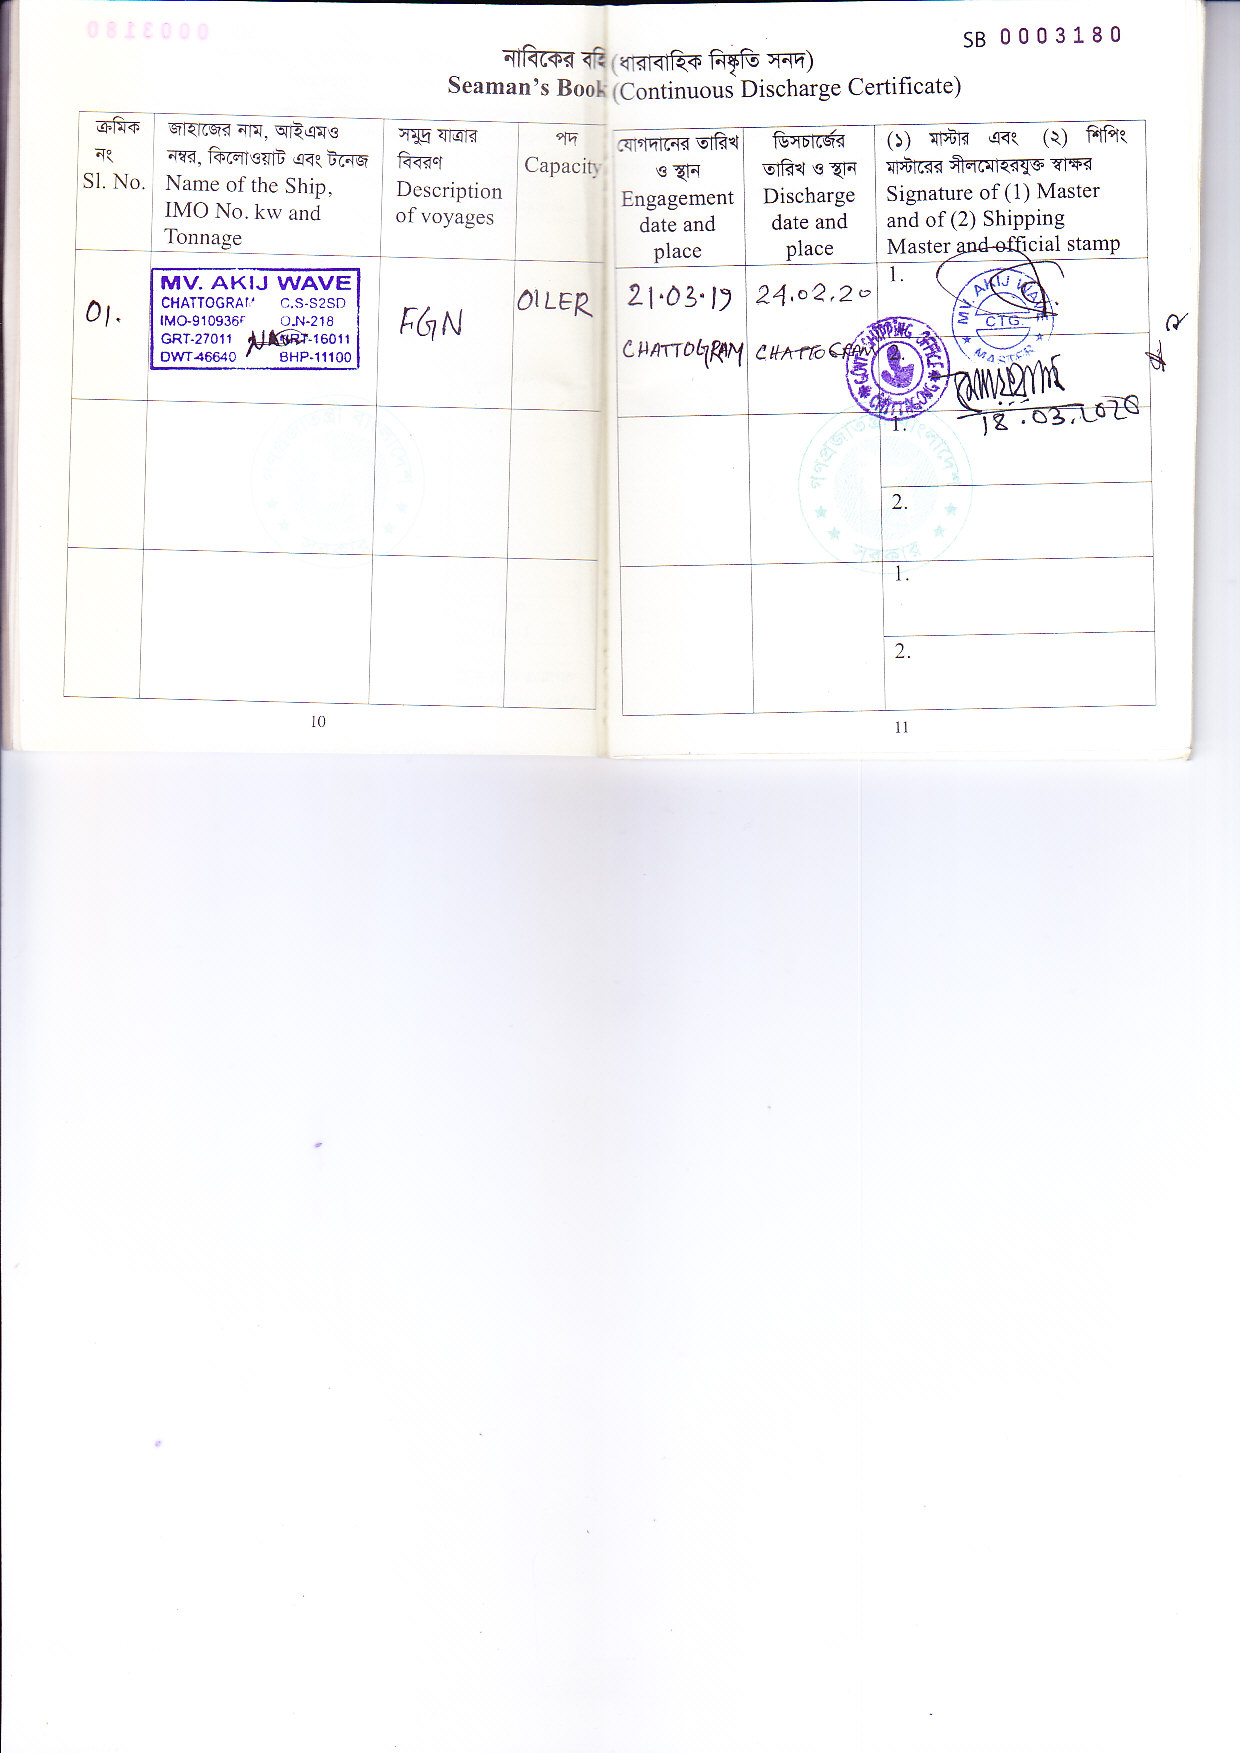 SB 0003180
নাবিকের বহি (ধারাবাহিক নিষ্কৃতি সনদ)
Seaman's Book (Continuous Discharge Certificate)
ক্রমিক
নং
Sl. No.
জাহাজের নাম, আইএমও
নম্বর, কিলোওয়াট এবং টনেজ
Name of the Ship,
IMO No. kw and
Tonnage
সমুদ্র যাত্রার
বিবরণ
Description
of voyages
পদ
Capacity
যোগদানের তারিখ
ও স্থান
Engagement
date and
place
ডিসচার্জের
তারিখ ও স্থান
Discharge
date and
place
(১) মাস্টার এবং (২) শিপিং
মাস্টারের সীলমোহরযুক্ত স্বাক্ষর
Signature of (1) Master
and of (2) Shipping
Master and official stamp
01.
MV. AKIJ WAVE
CHATTOGRAM C.S-S2SD
IMO-910936 O.N-218
GRT-27011 NRT-16011
DWT-46640 BHP-11100
FGN
OILER
21.03.19
CHATTOGRAM
24.02.20
CHATTOGRAM
1.
MV. AKIJ WAVE
CTG.
MASTER
2.
GOVT. SHIPPING OFFICE
CHATTAGONG
18.03.2020
1.
2.
গণপ্রজাতন্ত্রী বাংলাদেশ
সরকার
1.
2.
10
11